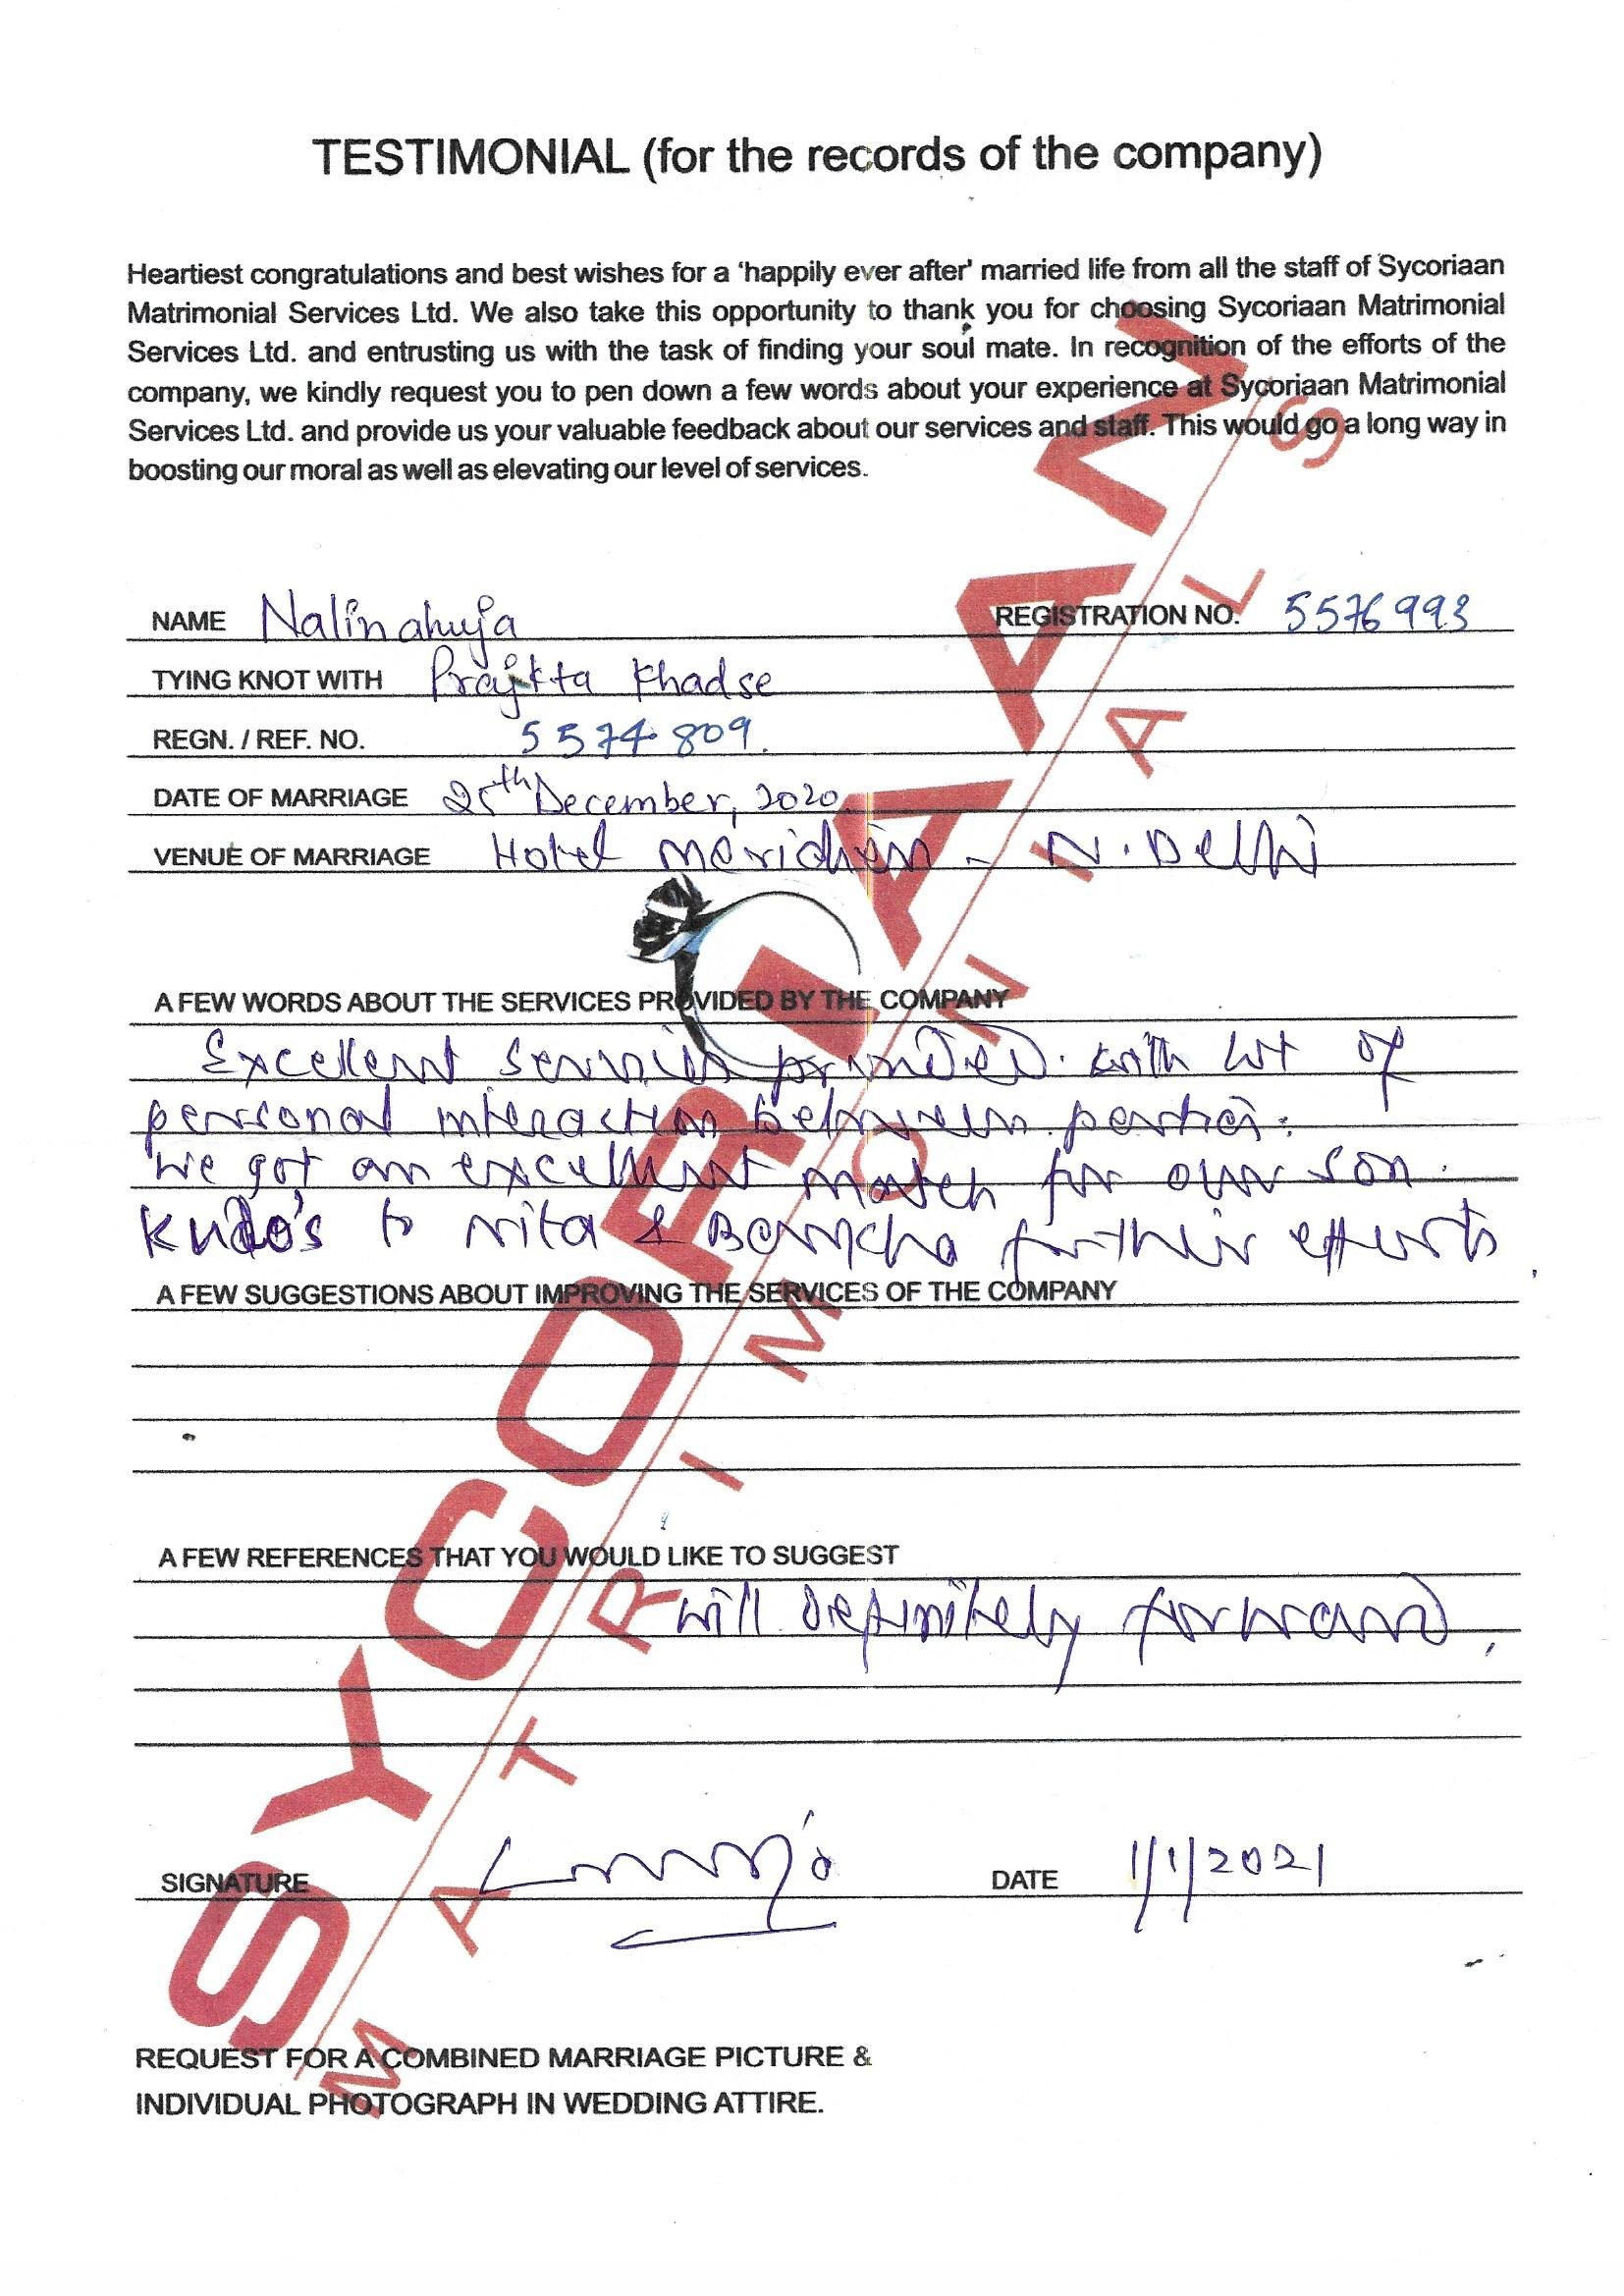 TESTIMONIAL (for the records of the company)
Heartiest congratulations and best wishes for a 'happily ever after' married life from all the staff of Sycoriaan
Matrimonial Services Ltd. We also take this opportunity to thank you for choosing Sycoriaan Matrimonial
Services Ltd. and entrusting us with the task of finding your soul mate. In recognition of the efforts of the
company, we kindly request you to pen down a few words about your experience at Sycoriaan Matrimonial
Services Ltd. and provide us your valuable feedback about our services and staff. This would go a long way in
boosting our moral as well as elevating our level of services.
NAME Nalin ahuja REGISTRATION NO. 5576993
TYING KNOT WITH Prajkta Khadse
REGN. / REF. NO. 5574809.
DATE OF MARRIAGE 25th December, 2020
VENUE OF MARRIAGE Hotel Meridien - N. Delhi
A FEW WORDS ABOUT THE SERVICES PROVIDED BY THE COMPANY
Excellent services provided. with lot of
personal interaction between parties.
We got an excellent match for our son.
Kudo's to Nita & for their efforts.
A FEW SUGGESTIONS ABOUT IMPROVING THE SERVICES OF THE COMPANY
A FEW REFERENCES THAT YOU WOULD LIKE TO SUGGEST
will definitely forward.
SIGNATURE DATE 1/1/2021
REQUEST FOR A COMBINED MARRIAGE PICTURE &
INDIVIDUAL PHOTOGRAPH IN WEDDING ATTIRE.
SYCORIAAN
MATRIMONIALS